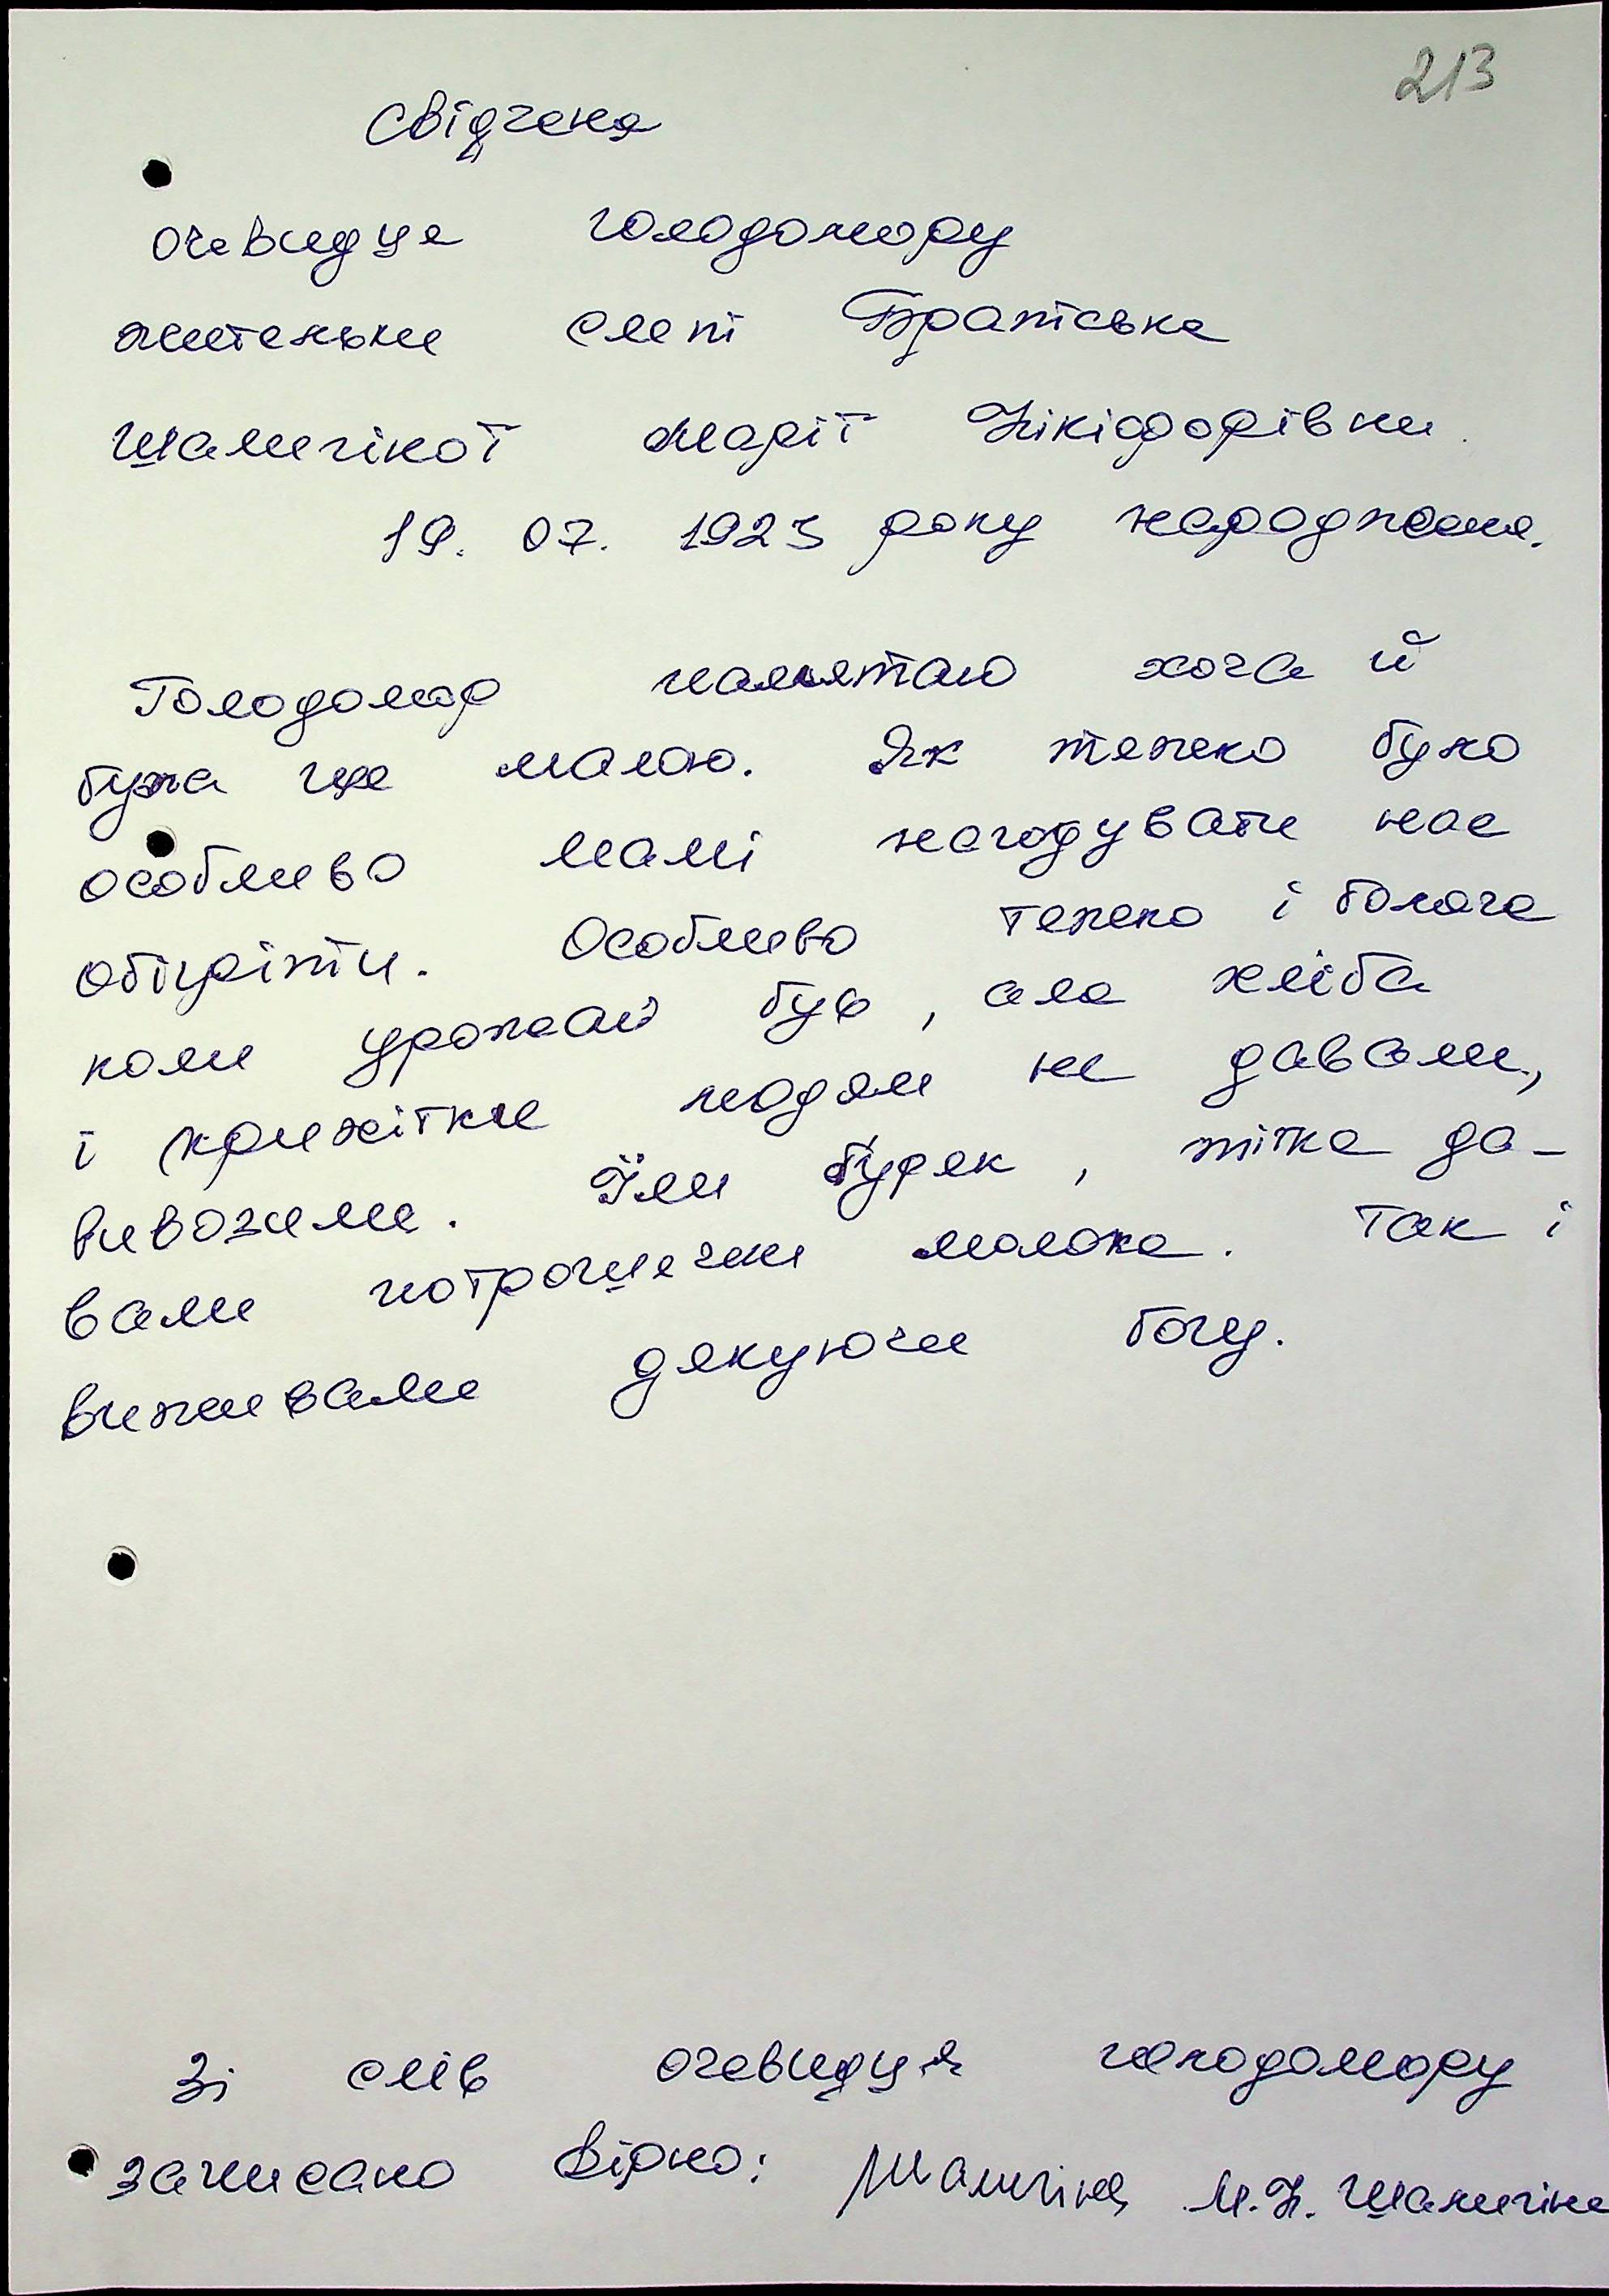 213
Свідченя
очевидця голодомору
жительки смт Братське
Шамшіної Марії Нікіфорівни.
19. 07. 1923 року народженя.
Голодомор памьятаю хоча й
була ще малою. Як тяжко було
особливо мамі нагодувати нас
обігріти. Особливо тежко і боляче
коли урожай був, але хліба
і крихітки людям не давали,
вивозили. Їли буряк, тітка да-
вали потрошечки молока. Так і
виживали дякуючи богу.
Зі слів очевидця голодомору
записано вірно: М.Н.